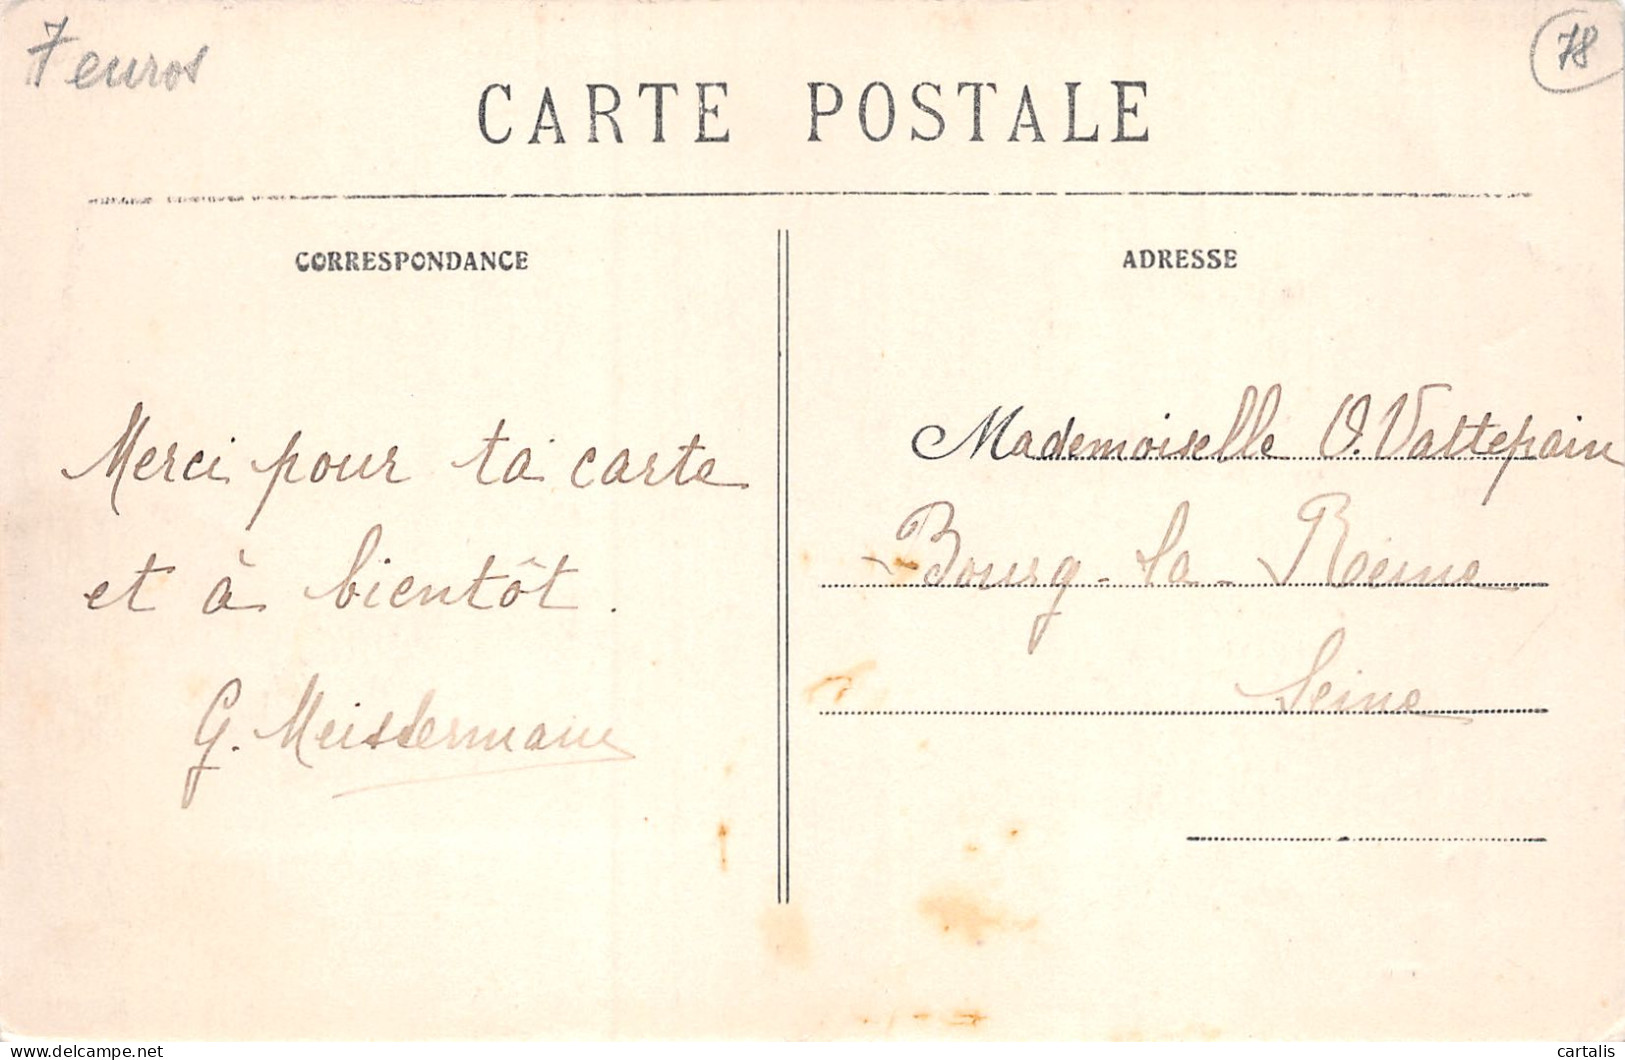 7 euros
78
CARTE POSTALE
CORRESPONDANCE
Merci pour ta carte
et à bientôt.
G. Meistermann
ADRESSE
Mademoiselle O. Vattepain
Bourg-la-Reine
Seine
delcampe.net
cartalis